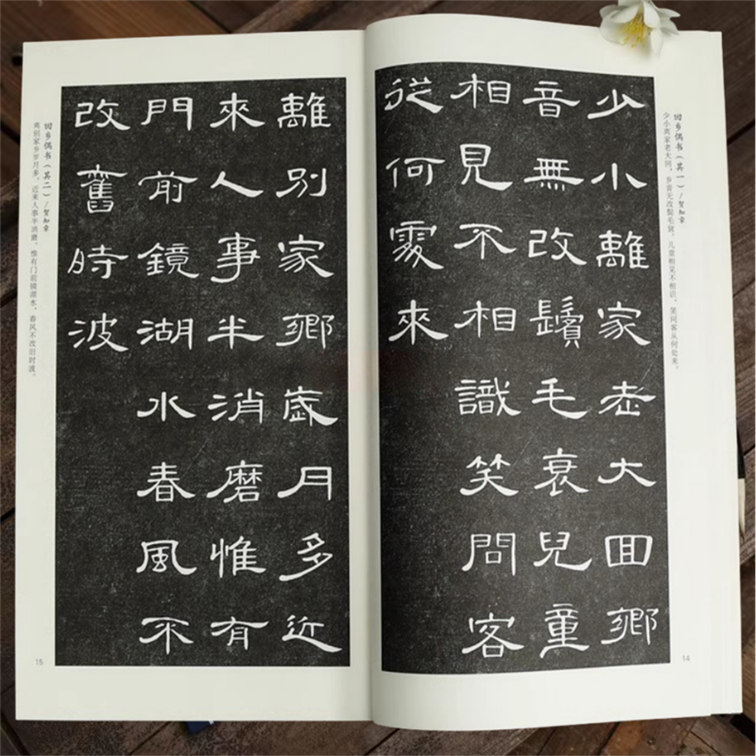 回乡偶书（其一）/贺知章
少小离家老大回，乡音无改鬓毛衰。儿童相见不相识，笑问客从何处来。
少小離家老大回鄉
音無改鬢毛衰兒童
相見不相識笑問客
從何處來
14
回乡偶书（其二）/贺知章
离别家乡岁月多，近来人事半消磨。惟有门前镜湖水，春风不改旧时波。
離別家鄉歲月多近
來人事半消磨惟有
門前鏡湖水春風不
改舊時波
15